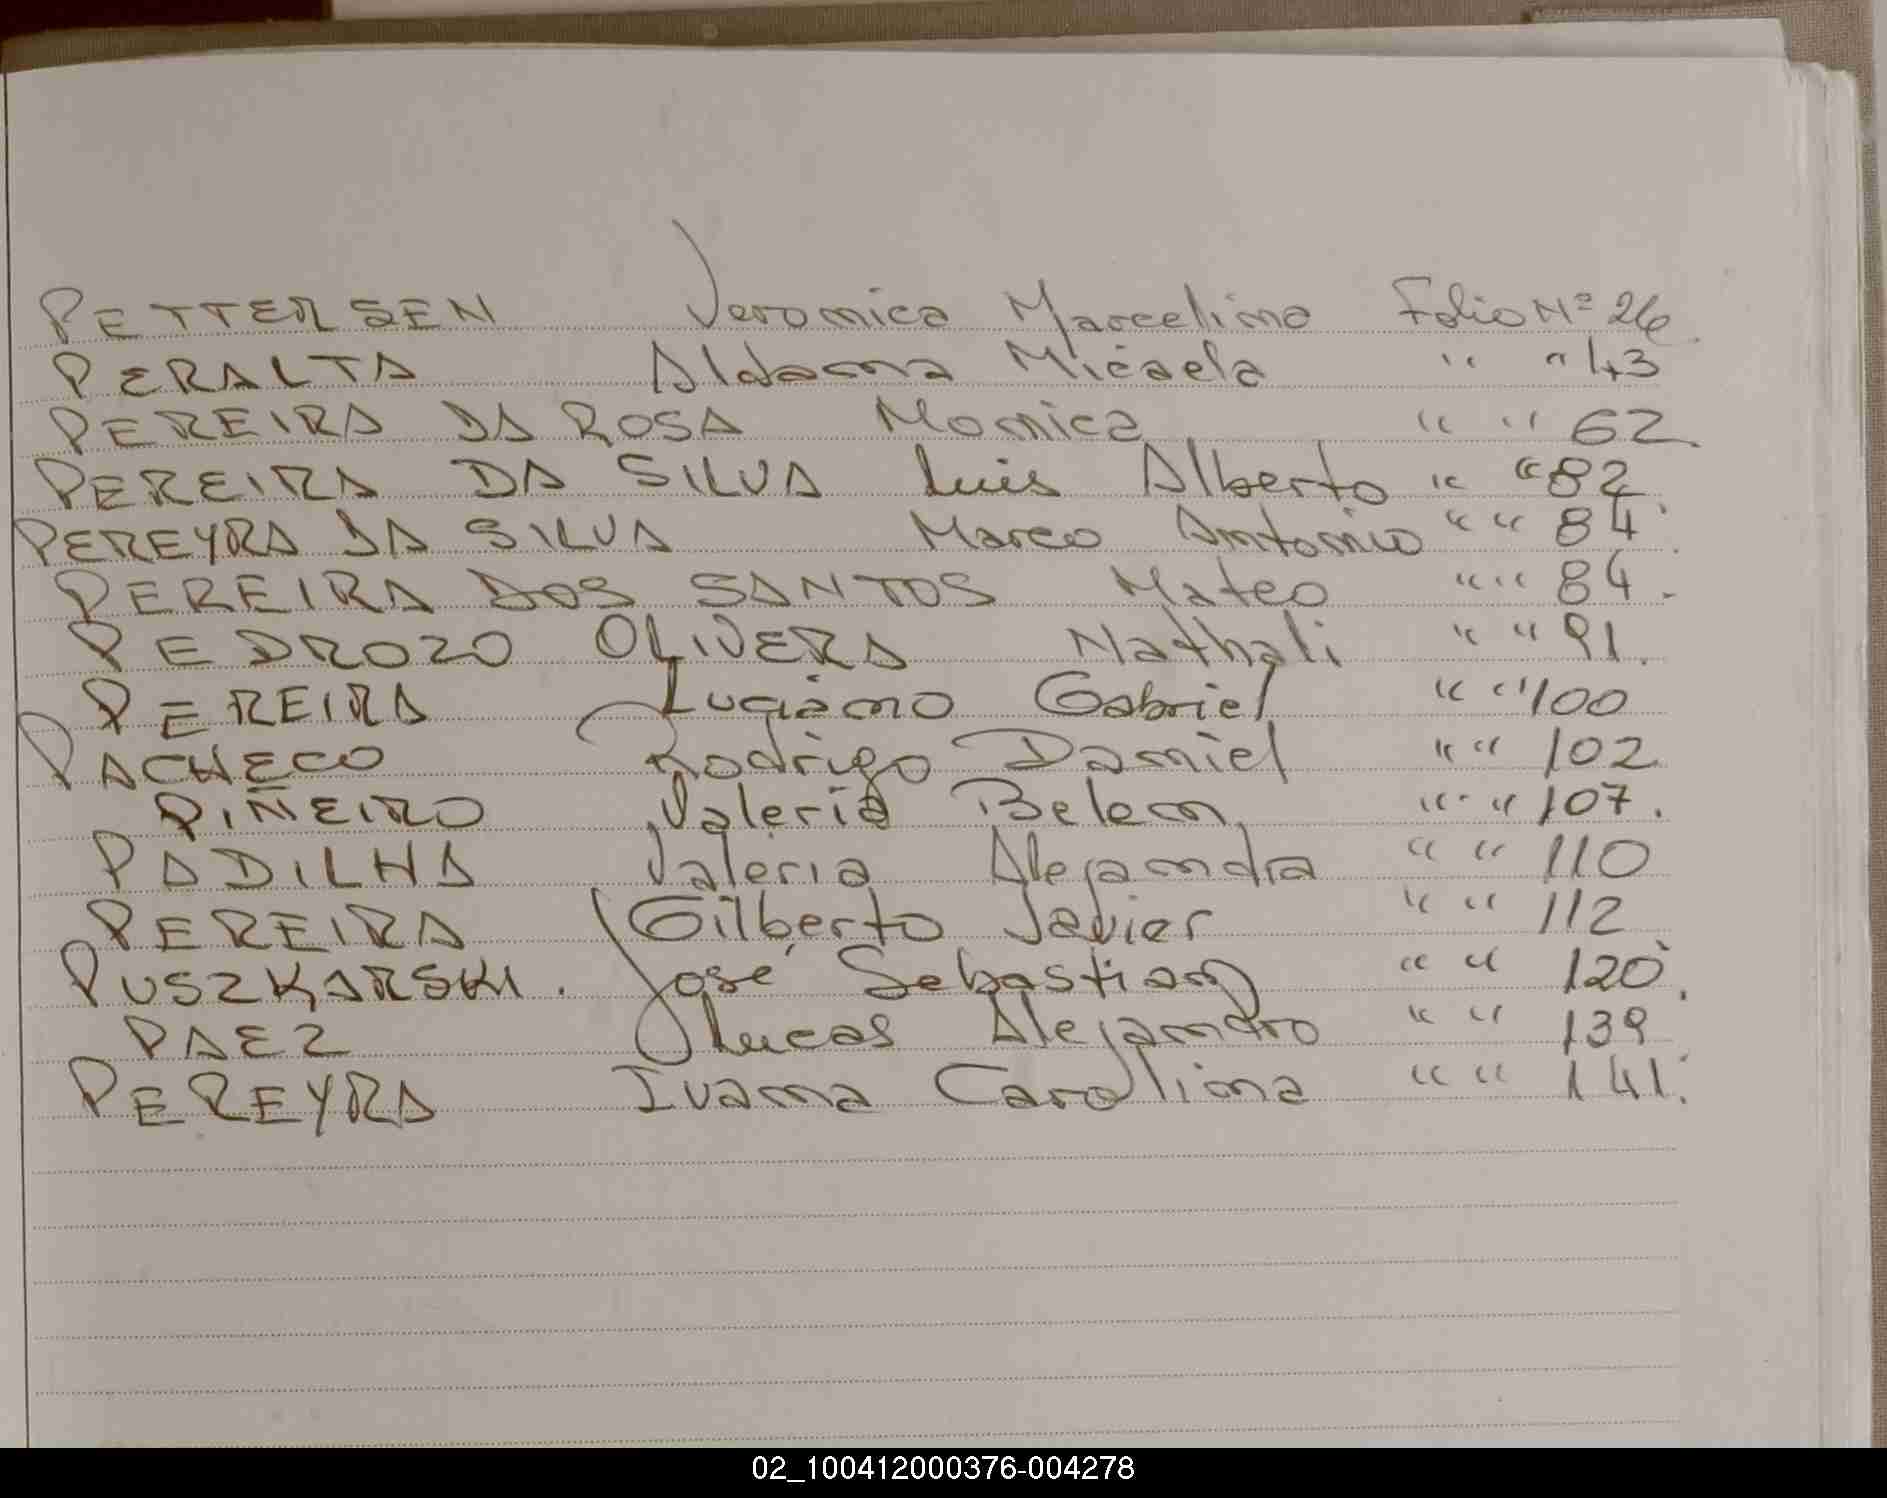 PETTERSEN Veronica Marcelina Folio Nº 26.
PERALTA Aldana Micaela " " 43
PEREIRA DA ROSA Monica " " 62.
PEREIRA DA SILVA Luis Alberto " " 82.
PEREYRA DA SILVA Marco Antonio " " 84.
PEREIRA DOS SANTOS Mateo " " 84.
PEDROZO OLIVERA Nathali " " 91.
PEREIRA Luciano Gabriel " " 100
PACHECO Rodrigo Daniel " " 102
PIÑEIRO Valeria Belen " " 107.
PADILHA Valeria Alejandra " " 110
PEREIRA Gilberto Javier " " 112
PUSZKARSKI. José Sebastian " " 120.
PAEZ Lucas Alejandro " " 139
PEREYRA Ivana Carolina " " 141.
02_100412000376-004278